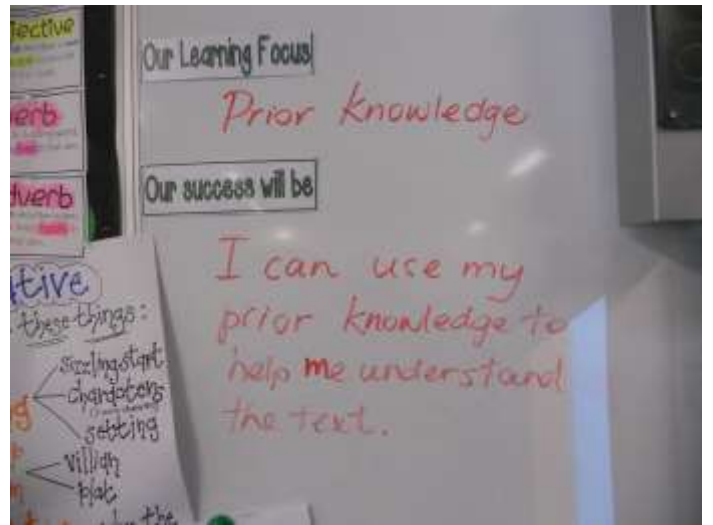 Our Learning Focus
Prior Knowledge
Our success will be
I can use my
prior knowledge to
help me understand
the text.
these things:
sizzling start
characters
setting
villian
plot
the